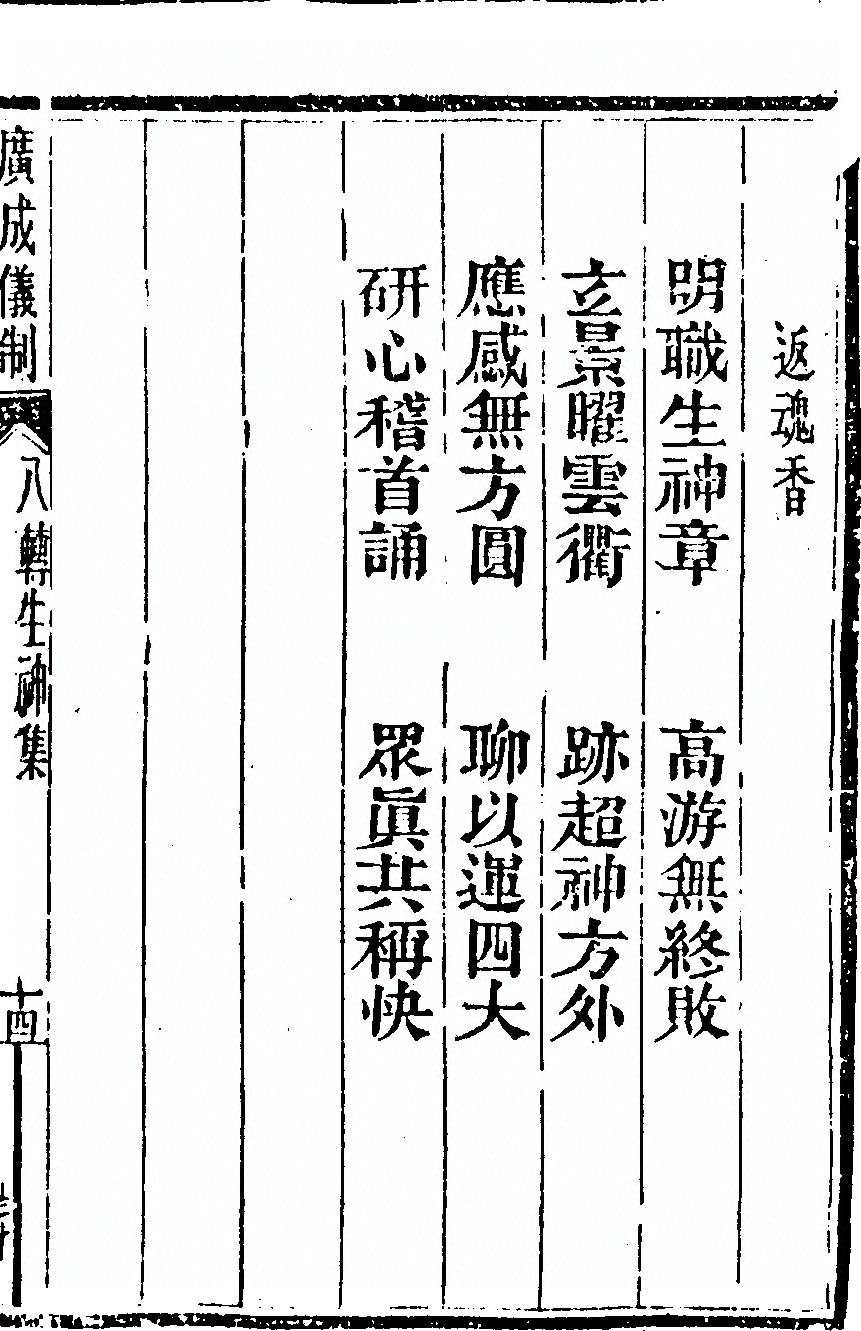 返魂香
明職生神章　高游無終敗
玄景曜雲衢　跡超神方外
應感無方圓　聊以運四大
研心稽首誦　眾眞共稱快
廣成儀制　八轉生神集　十四